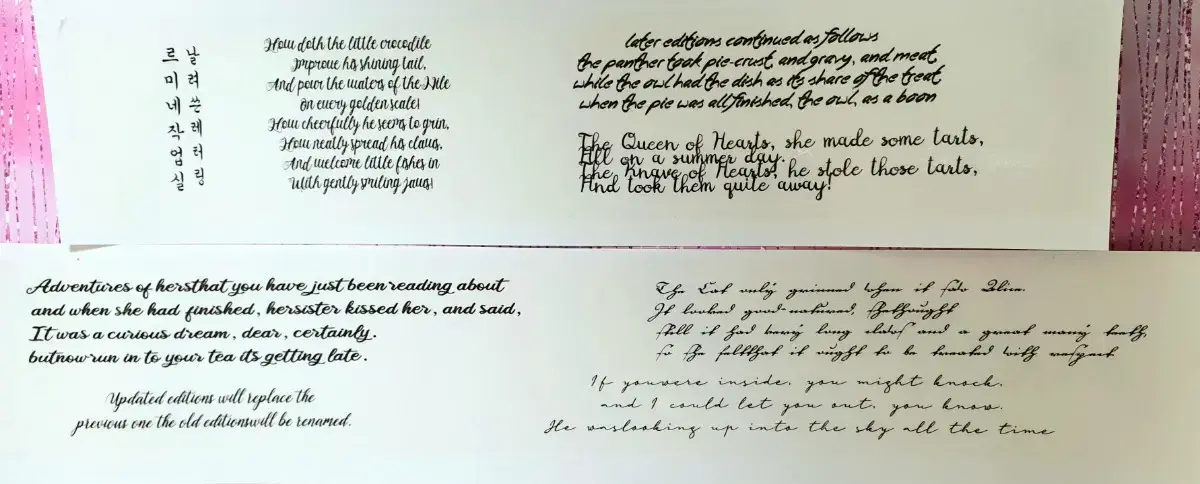 르미네작업실
날려쓴레터링
How doth the little crocodile
Improve his shining tail,
And pour the waters of the Nile
On every golden scale!
How cheerfully he seems to grin,
How neatly spread his claws,
And welcome little fishes in
With gently smiling jaws!
later editions continued as follows
the panther took pie-crust, and gravy, and meat,
while the owl had the dish as its share of the treat
when the pie was all finished, the owl, as a boon
The Queen of Hearts, she made some tarts,
All on a summer day:
The Knave of Hearts, he stole those tarts,
And took them quite away!
Adventures of hersthat you have just been reading about
and when she had finished, hersister kissed her, and said,
It was a curious dream, dear, certainly.
butnow run in to your tea its getting late.
Updated editions will replace the
previous one the old editionswill be renamed.
The Cat only grinned when it saw Alice.
It looked good-natured, shethought
still it had very long claws and a great many teeth,
so she feltthat it ought to be treated with respect
If youwere inside, you might knock,
and I could let you out, you know.
He waslooking up into the sky all the time